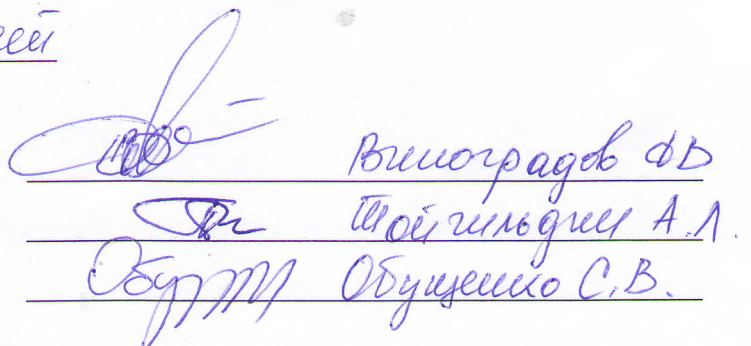 Виноградов ДВ
Тойгильдин А.Л.
Обущенко С.В.